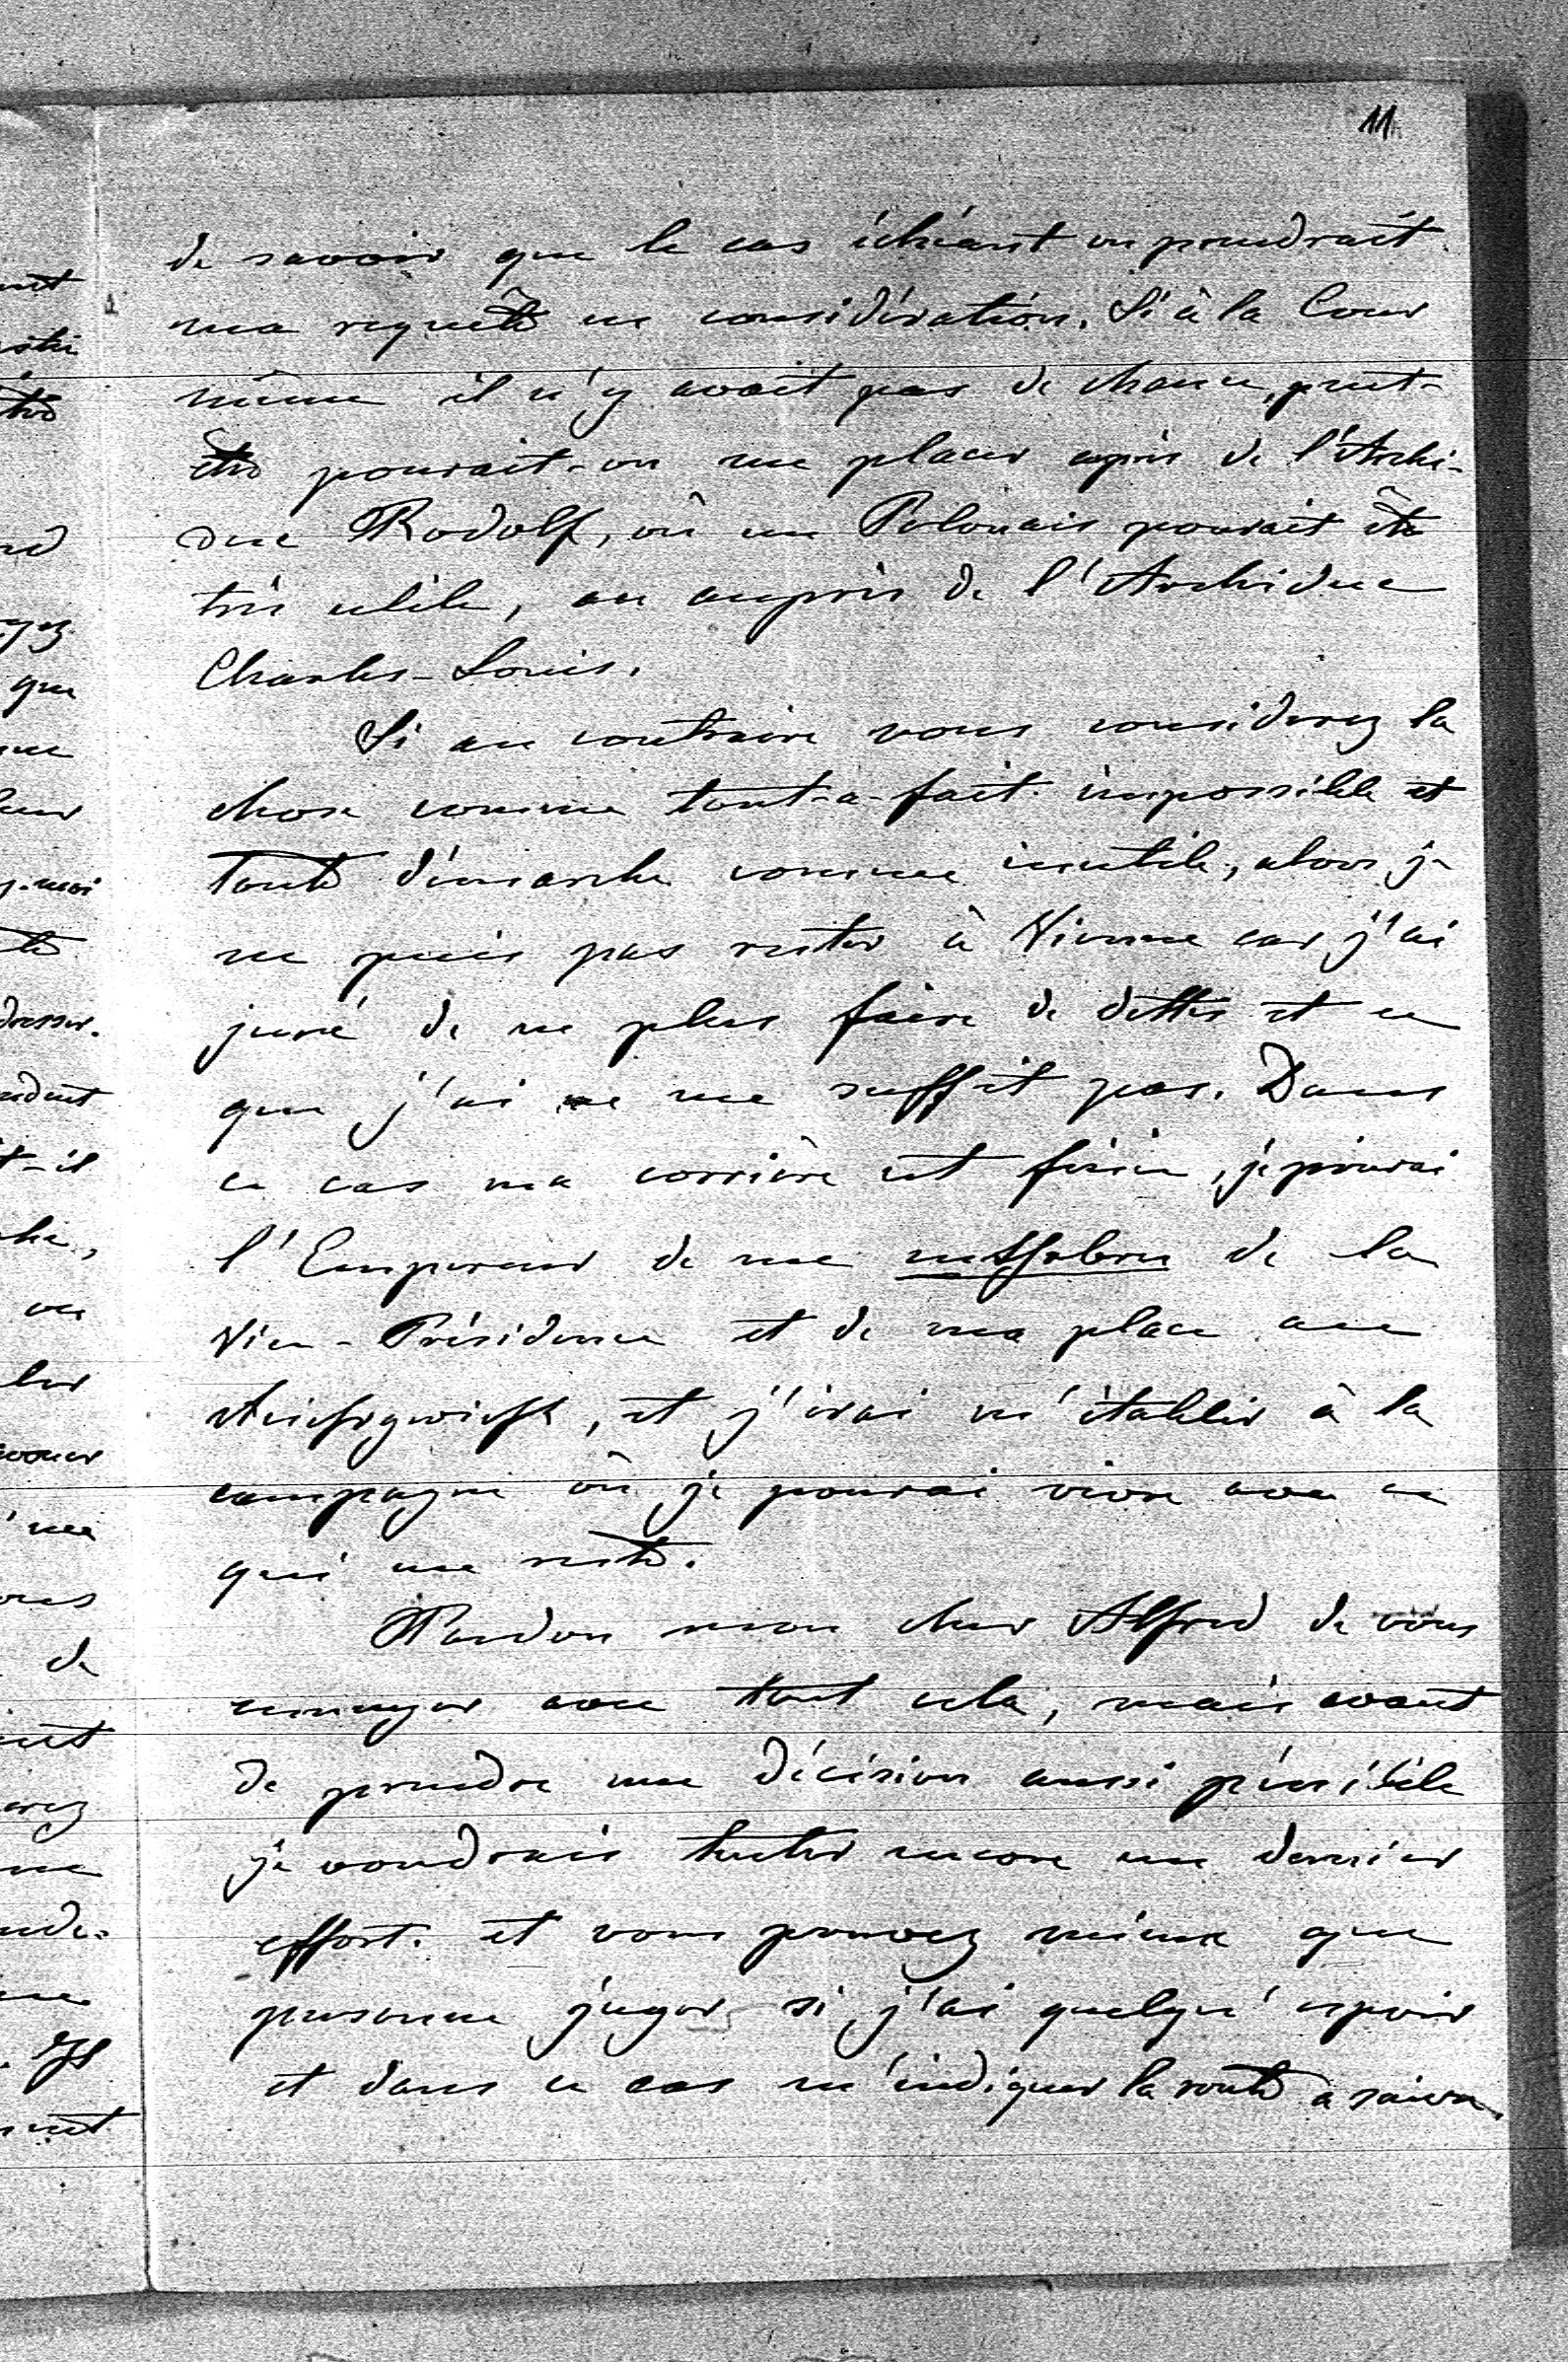 11
de savoir que le cas échéant on prendrait
ma requête en considération. Si à la Cour
même il n'y avait pas de chance, peut-
être pourait-on me placer auprès de l'Archi-
duc Rodolf, où un Polonais pourait être
très utile, ou auprès de l'Archiduc
Charles-Louis.
Si au contraire vous considerez la
chose comme tout-a-fait impossible et
toute démarche comme inutile, alors je
ne puis pas rester à Vienne car j'ai
juré de ne plus faire de dettes et ce
que j'ai ne me suffit pas. Dans
ce cas ma carrière est finie, je prierai
l'Empereur de me entheben de la
Vice-Présidence et de ma place au
et j'irai m'établir à la
campagne où je pourai vivre avec ce
qui me reste.
Pardon mon cher Alfred de vous
ennuyer avec tout cela, mais avant
de prendre une décision aussi pénible
je voudrais tenter encore un dernier
effort. et vous pouvez mieux que
personne juger si j'ai quelqu' espoir
et dans ce cas m'indiquer la route à suivre.